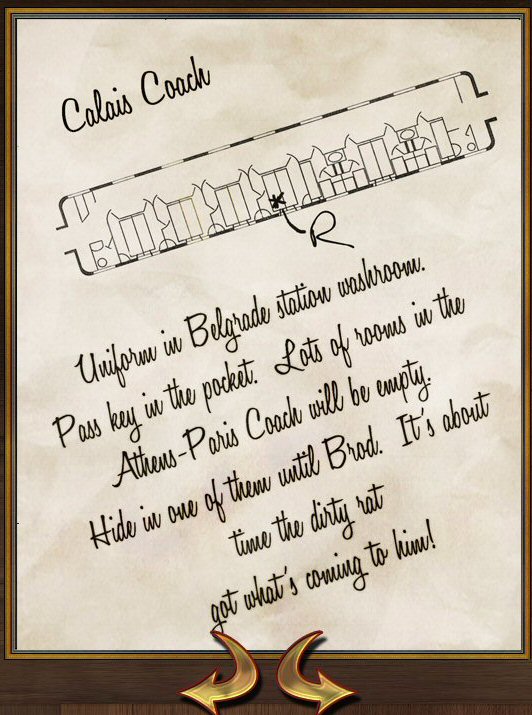 Calais Coach
R
Uniform in Belgrade station washroom.
Pass key in the pocket. Lots of rooms in the
Athens-Paris Coach will be empty.
Hide in one of them until Brod. It's about
time the dirty rat
got what's coming to him!